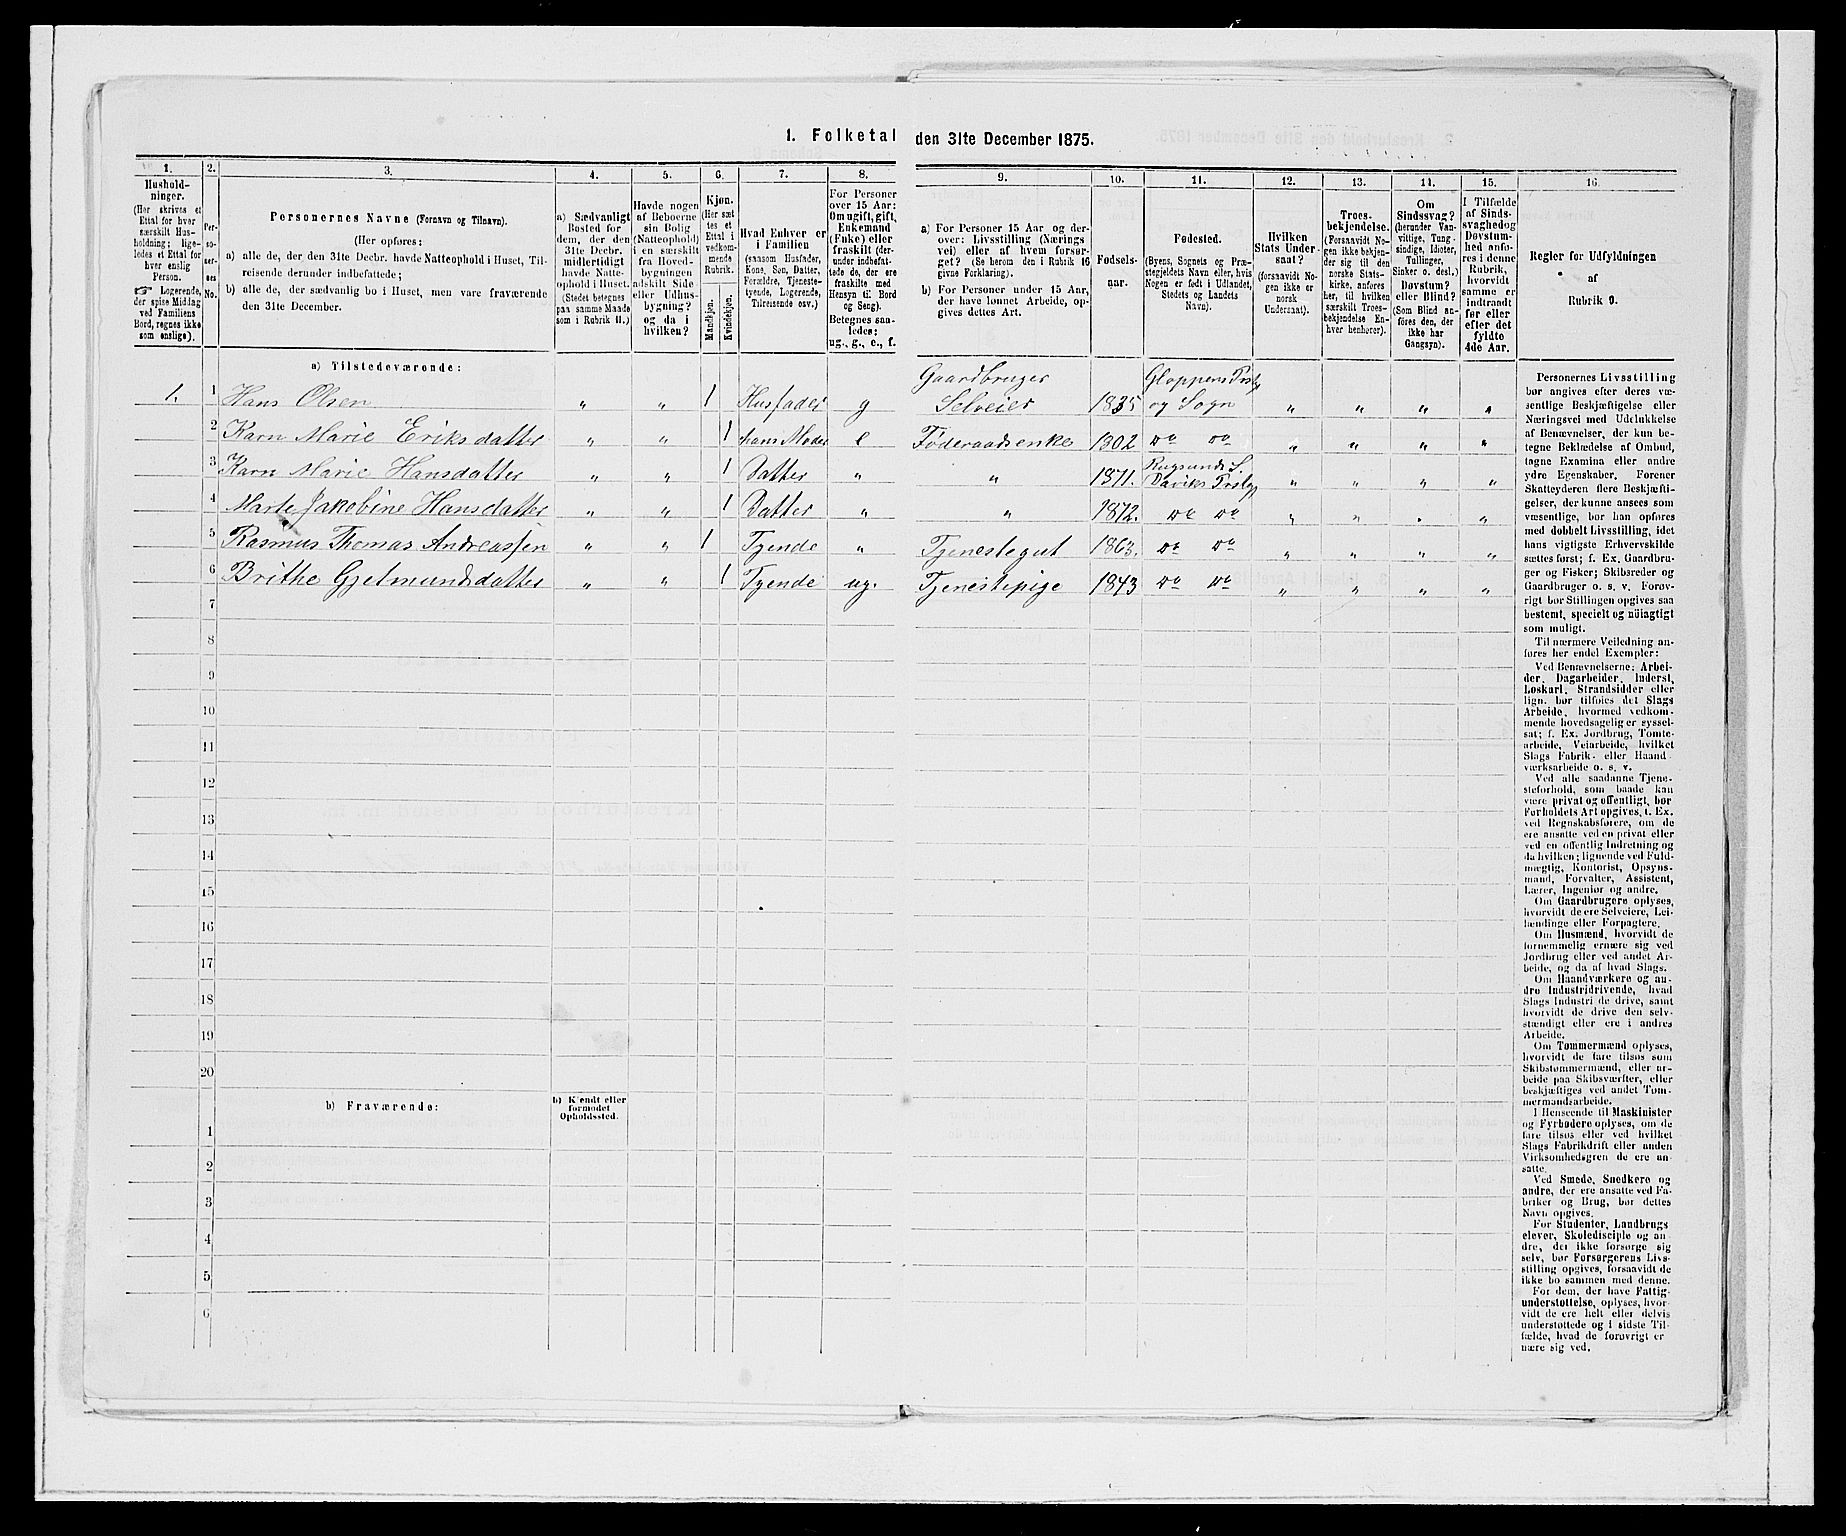 1. Folketal den 31te December 1875.
1. 2. 3. 4. 5. 6. 7. 8. 9. 10. 11. 12. 13. 14. 15. 16.
Hushold-
ninger.
(Her skrives et
Ettal for hver
særskilt Hus-
holdning; lige-
ledes et Ettal for
hver enslig
Person.
☞ Logerende,
der spise Middag
ved Familiens
Bord, regnes ikke
som enslige).
Per-
so-
ner-
nes
No.
Personernes Navne (Fornavn og Tilnavn).
(Her opføres:
a) alle de, der den 31te Decbr. havde Natteophold i Huset, Til-
reisende derunder indbefattede;
b) alle de, der sædvanlig bo i Huset, men vare fraværende
den 31te December.
a) Sædvanligt
Bosted for
dem, der den
31te Decbr.
midlertidigt
havde Natte-
ophold i Huset.
(Stedet betegnes
paa samme Maade
som i Rubrik 11.)
Havde nogen
af Beboerne
sin Bolig
(Natteophold)
i en særskilt
fra Hoved-
bygningen
adskilt Side-
eller Udhus-
bygning?
og da i
hvilken?
Kjøn.
(Her sæt-
tes et
Ettal i
vedkom-
mende
Rubrik.
Mandkjøn.
Kvindekjøn.
Hvad Enhver er
i Familien
(saasom Husfader,
Kone, Søn, Datter,
Forældre, Tjeneste-
tyende, Logerende,
Tilreisende osv.)
For Personer
over 15 Aar:
Om ugift, gift,
Enkemand
(Enke) eller
fraskilt (der-
under indbefat-
tede de, der ere
fraskilte med
Hensyn til Bord
og Seng).
Betegnes saa-
ledes:
ug., g., e., f.
a) For Personer 15 Aar og der-
over: Livsstilling (Nærings-
vei) eller af hvem forsør-
get? (Se herom den i Rubrik 16
givne Forklaring).
b) For Personer under 15 Aar,
der have lønnet Arbeide, op-
gives dettes Art.
Fødsels-
aar.
Fødested.
(Byens, Sognets og Præ-
stegjeldets Navn eller, hvis
Nogen er født i Udlandet,
Stedets og Landets
Navn).
Hvilken
Stats Under-
saat?
(forsaavidt No-
gen ikke er
norsk
Undersaat).
Troes-
bekjendelse.
(Forsaavidt No-
gen ikke bekjen-
der sig til den
norske Stats-
kirke, anføres
her, til hvilken
særskilt Troes-
bekjendelse En-
hver henhører).
Om
Sindssvag?
(herunder Van-
vittige, Tung-
sindige, Idioter,
Tullinger,
Sinker o. desl.)
Døvstum?
eller Blind?
(Som Blind an-
føres den, der
ikke har
Gangsyn).
I Tilfælde
af Sinds-
svaghed og
Døvstum-
hed anfø-
res i denne
Rubrik,
hvorvidt
samme er
indtraadt
før eller
efter det
fyldte
4de Aar.
Regler for Udfyldningen
af
Rubrik 9.
a) Tilstedeværende:
1. 1 Hans Olsen " " 1 Husfader g Gaardbruger Selveier 1835 Gloppens Prstg og Sogn " " " "
2 Karn Marie Eriksdatter " " 1 hans Moder e Føderaadsenke 1802 Do Do " " " "
3 Karn Marie Hansdatter " " 1 Datter " " 1871. Rugsunds S. Daviks Prstgj " " " "
4 Marte Jakobine Hansdatter " " 1 Datter " " 1872. Do Do " " " "
5 Rasmus Thomas Andreassen " " 1 Tyende " Tjenestegut 1863. Do Do " " " "
6 Brithe Gjelmundsdatter " " 1 Tyende ug. Tjenestepige 1843 Do Do " " " "
7
8
9
10
11
12
13
14
15
16
17
18
19
20
b) Fraværende:
b) Kjendt eller
formodet
Opholdssted.
1
2
3
4
5
6
Personernes Livsstilling
bør angives efter deres væ-
sentlige Beskjæftigelse eller
Næringsvei med Udelukkelse
af Benævnelser, der kun be-
tegne Beklædelse af Ombud,
tagne Examina eller andre
ydre Egenskaber. Forener
Skatteyderen flere Beskjæfti-
gelser, der kunne ansees som
væsentlige, bør han opføres
med dobbelt Livsstilling, idet
hans vigtigste Erhvervskilde
sættes først; f. Ex. Gaardbru-
ger og Fisker; Skibsreder og
Gaardbruger o. s. v. Forøv-
rigt bør Stillingen opgives saa
bestemt, specielt og nøiagtigt
som muligt.
Til nærmere Veiledning an-
føres her endel Exempler:
Ved Benævnelserne: Arbei-
der, Dagarbeider, Inderst,
Løskarl, Strandsidder eller
lign. bør tilføies det Slags
Arbeide, hvormed vedkom-
mende hovedsagelig er syssel-
sat; f. Ex. Jordbrug, Tomte-
arbeide, Veiarbeide, hvilket
Slags Fabrik- eller Haand-
værksarbeide o. s. v.
Ved alle saadanne Tjene-
steforhold, som baade kan
være privat og offentligt, bør
Forholdets Art opgives, t. Ex.
ved Regnskabsførere, om de
ere ansatte ved en privat eller
ved en offentlig Indretning og
da hvilken; lignende ved Fuld-
mægtig, Kontorist, Opsyns-
mand, Forvalter, Assistent,
Lærer, Ingeniør og andre.
Om Gaardbrugere oplyses,
hvorvidt de ere Selveiere, Lei-
lændinge eller Forpagtere.
Om Husmænd, hvorvidt de
fornemmelig ernære sig ved
Jordbrug eller ved andet Ar-
beide, og da af hvad Slags.
Om Haandværkere og an-
dre Industridrivende, hvad
Slags Industri de drive, samt
hvorvidt de drive den selv-
stændigt eller ere i andres
Arbeide.
Om Tømmermænd oplyses,
hvorvidt de fare tilsøs som
Skibstømmermænd, eller ar-
beide paa Skibsværfter, eller
beskjæftiges ved andet Tøm-
mermandsarbeide.
I Henseende til Maskinister
og Fyrbødere oplyses, om de
fare tilsøs eller ved hvilket
Slags Fabrikdrift eller anden
Virksomhedsgren de ere an-
satte.
Ved Smede, Snedkere og
andre, der ere ansatte ved Fa-
briker og Brug, bør dettes
Navn opgives.
For Studenter, Landbrugs-
elever, Skoledisciple og an-
dre, der ikke forsørge sig
selv, bør Forsørgerens Livs-
stilling opgives, forsaavidt de
ikke bo sammen med denne.
For dem, der have Fattig-
understøttelse, oplyses, hvor-
vidt de ere helt eller delvis
understøttede og i sidste Til-
fælde, hvad de forøvrigt er-
nære sig ved.